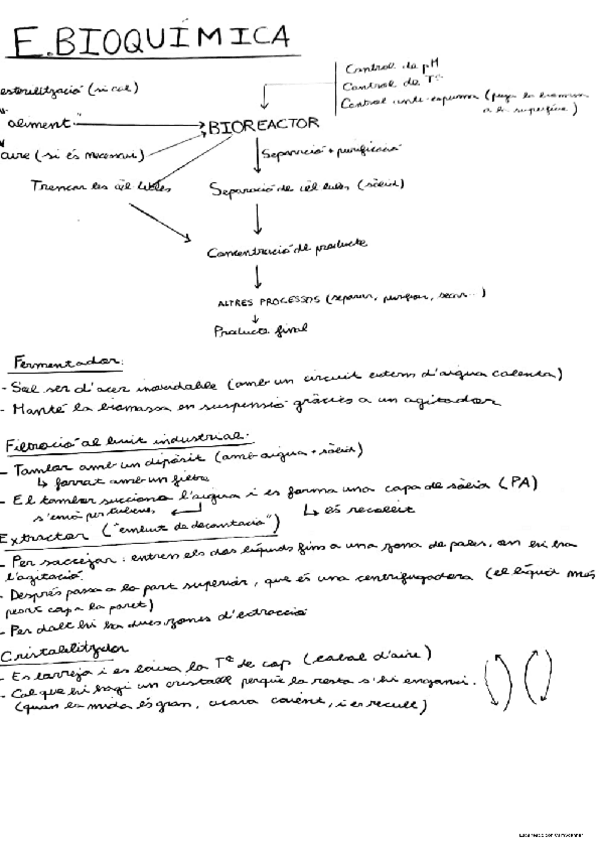 E. BIOQUÍMICA
Control de pH
Control de Tª
Control anti-espuma (puja la biomassa
a la superfície)
esterilització (si cal)
aliment
BIOREACTOR
aire (si és necessari)
Separació + purificació
Trencar les cèl·lules
Separació de cèl·lules (sòlid)
Concentració de producte
ALTRES PROCESSOS (separar, purificar, secar...)
Producte final
Fermentador:
- Sol ser d'acer inoxidable (amb un circuit extern d'aigua calenta)
- Manté la biomassa en suspensió gràcies a un agitador
Filtració al buit industrial:
- Tambor amb un dipòsit (amb aigua + sòlid)
↳ forrat amb un filtre
- El tambor succiona l'aigua i es forma una capa de sòlid (PA)
s'envia per tuberies
↳ és recollit
Extractor ("embut de decantació")
- Per sacsejar: entren els dos líquids fins a una zona de pales, on hi ha
l'agitació.
- Després passa a la part superior, que és una centrifugadora (el líquid més
cap a la paret)
- Per dalt hi ha dues zones d'extracció
Cristal·litzador
- Es barreja i es baixa la Tª de cop (cabal d'aire)
- Cal que hi hagi un cristall perquè la resta s'hi enganxi.
(quan la mida és gran, acaba caient, i es recull)